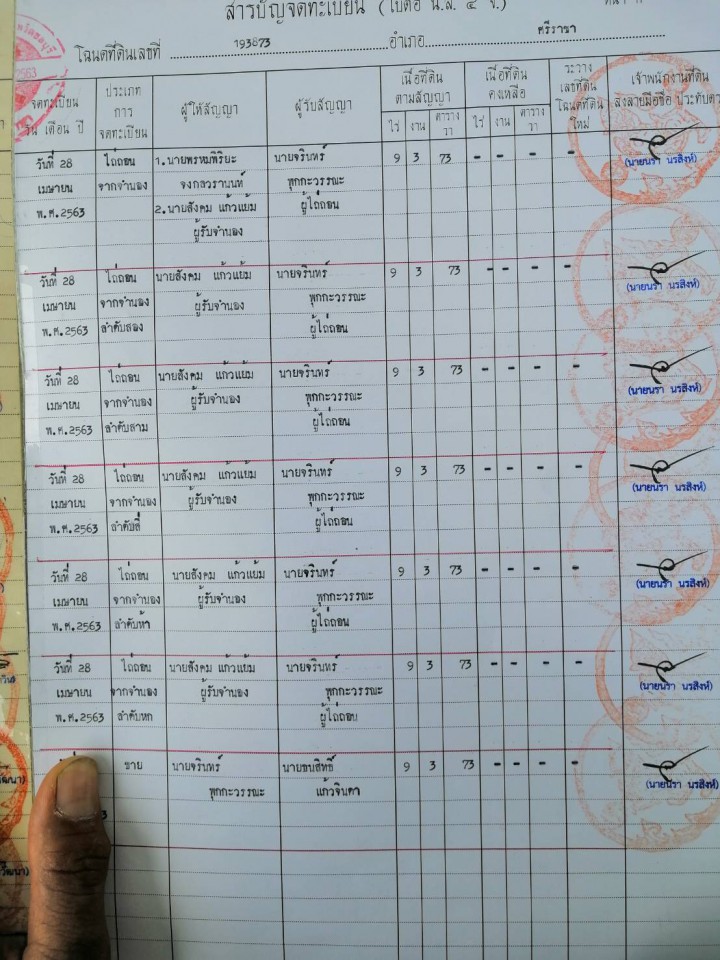 สารบัญจดทะเบียน (ใบต่อ น.ส. ๔ จ.)
โฉนดที่ดินเลขที่ 193873 อำเภอ ศรีราชา
2563
จดทะเบียน วัน เดือน ปี
ประเภท การ จดทะเบียน
ผู้ให้สัญญา
ผู้รับสัญญา
เนื้อที่ดิน ตามสัญญา
ไร่ งาน ตารางวา
เนื้อที่ดิน คงเหลือ
ไร่ งาน ตารางวา
ระวาง เลขที่ดิน โฉนดที่ดิน ใหม่
เจ้าพนักงานที่ดิน
ลงลายมือชื่อ ประทับตรา
วันที่ 28 ไถ่ถอน 1.นายพรหมพิริยะ นายจรินทร์ 9 3 73 - - - - (นายนรา นรสิงห์)
เมษายน จากจำนอง จงกลวรานนท์ พุกกะวรรณะ
พ.ศ.2563 2.นายสังคม แก้วแย้ม ผู้ไถ่ถอน
ผู้รับจำนอง
วันที่ 28 ไถ่ถอน นายสังคม แก้วแย้ม นายจรินทร์ 9 3 73 - - - - (นายนรา นรสิงห์)
เมษายน จากจำนอง ผู้รับจำนอง พุกกะวรรณะ
พ.ศ.2563 ลำดับสอง ผู้ไถ่ถอน
วันที่ 28 ไถ่ถอน นายสังคม แก้วแย้ม นายจรินทร์ 9 3 73 - - - - (นายนรา นรสิงห์)
เมษายน จากจำนอง ผู้รับจำนอง พุกกะวรรณะ
พ.ศ.2563 ลำดับสาม ผู้ไถ่ถอน
วันที่ 28 ไถ่ถอน นายสังคม แก้วแย้ม นายจรินทร์ 9 3 73 - - - - (นายนรา นรสิงห์)
เมษายน จากจำนอง ผู้รับจำนอง พุกกะวรรณะ
พ.ศ.2563 ลำดับสี่ ผู้ไถ่ถอน
วันที่ 28 ไถ่ถอน นายสังคม แก้วแย้ม นายจรินทร์ 9 3 73 - - - - (นายนรา นรสิงห์)
เมษายน จากจำนอง ผู้รับจำนอง พุกกะวรรณะ
พ.ศ.2563 ลำดับห้า ผู้ไถ่ถอน
วันที่ 28 ไถ่ถอน นายสังคม แก้วแย้ม นายจรินทร์ 9 3 73 - - - - (นายนรา นรสิงห์)
เมษายน จากจำนอง ผู้รับจำนอง พุกกะวรรณะ
พ.ศ.2563 ลำดับหก ผู้ไถ่ถอน
ขาย นายจรินทร์ นายชนสิทธิ์ 9 3 73 - - - - (นายนรา นรสิงห์)
พุกกะวรรณะ แก้วจินดา